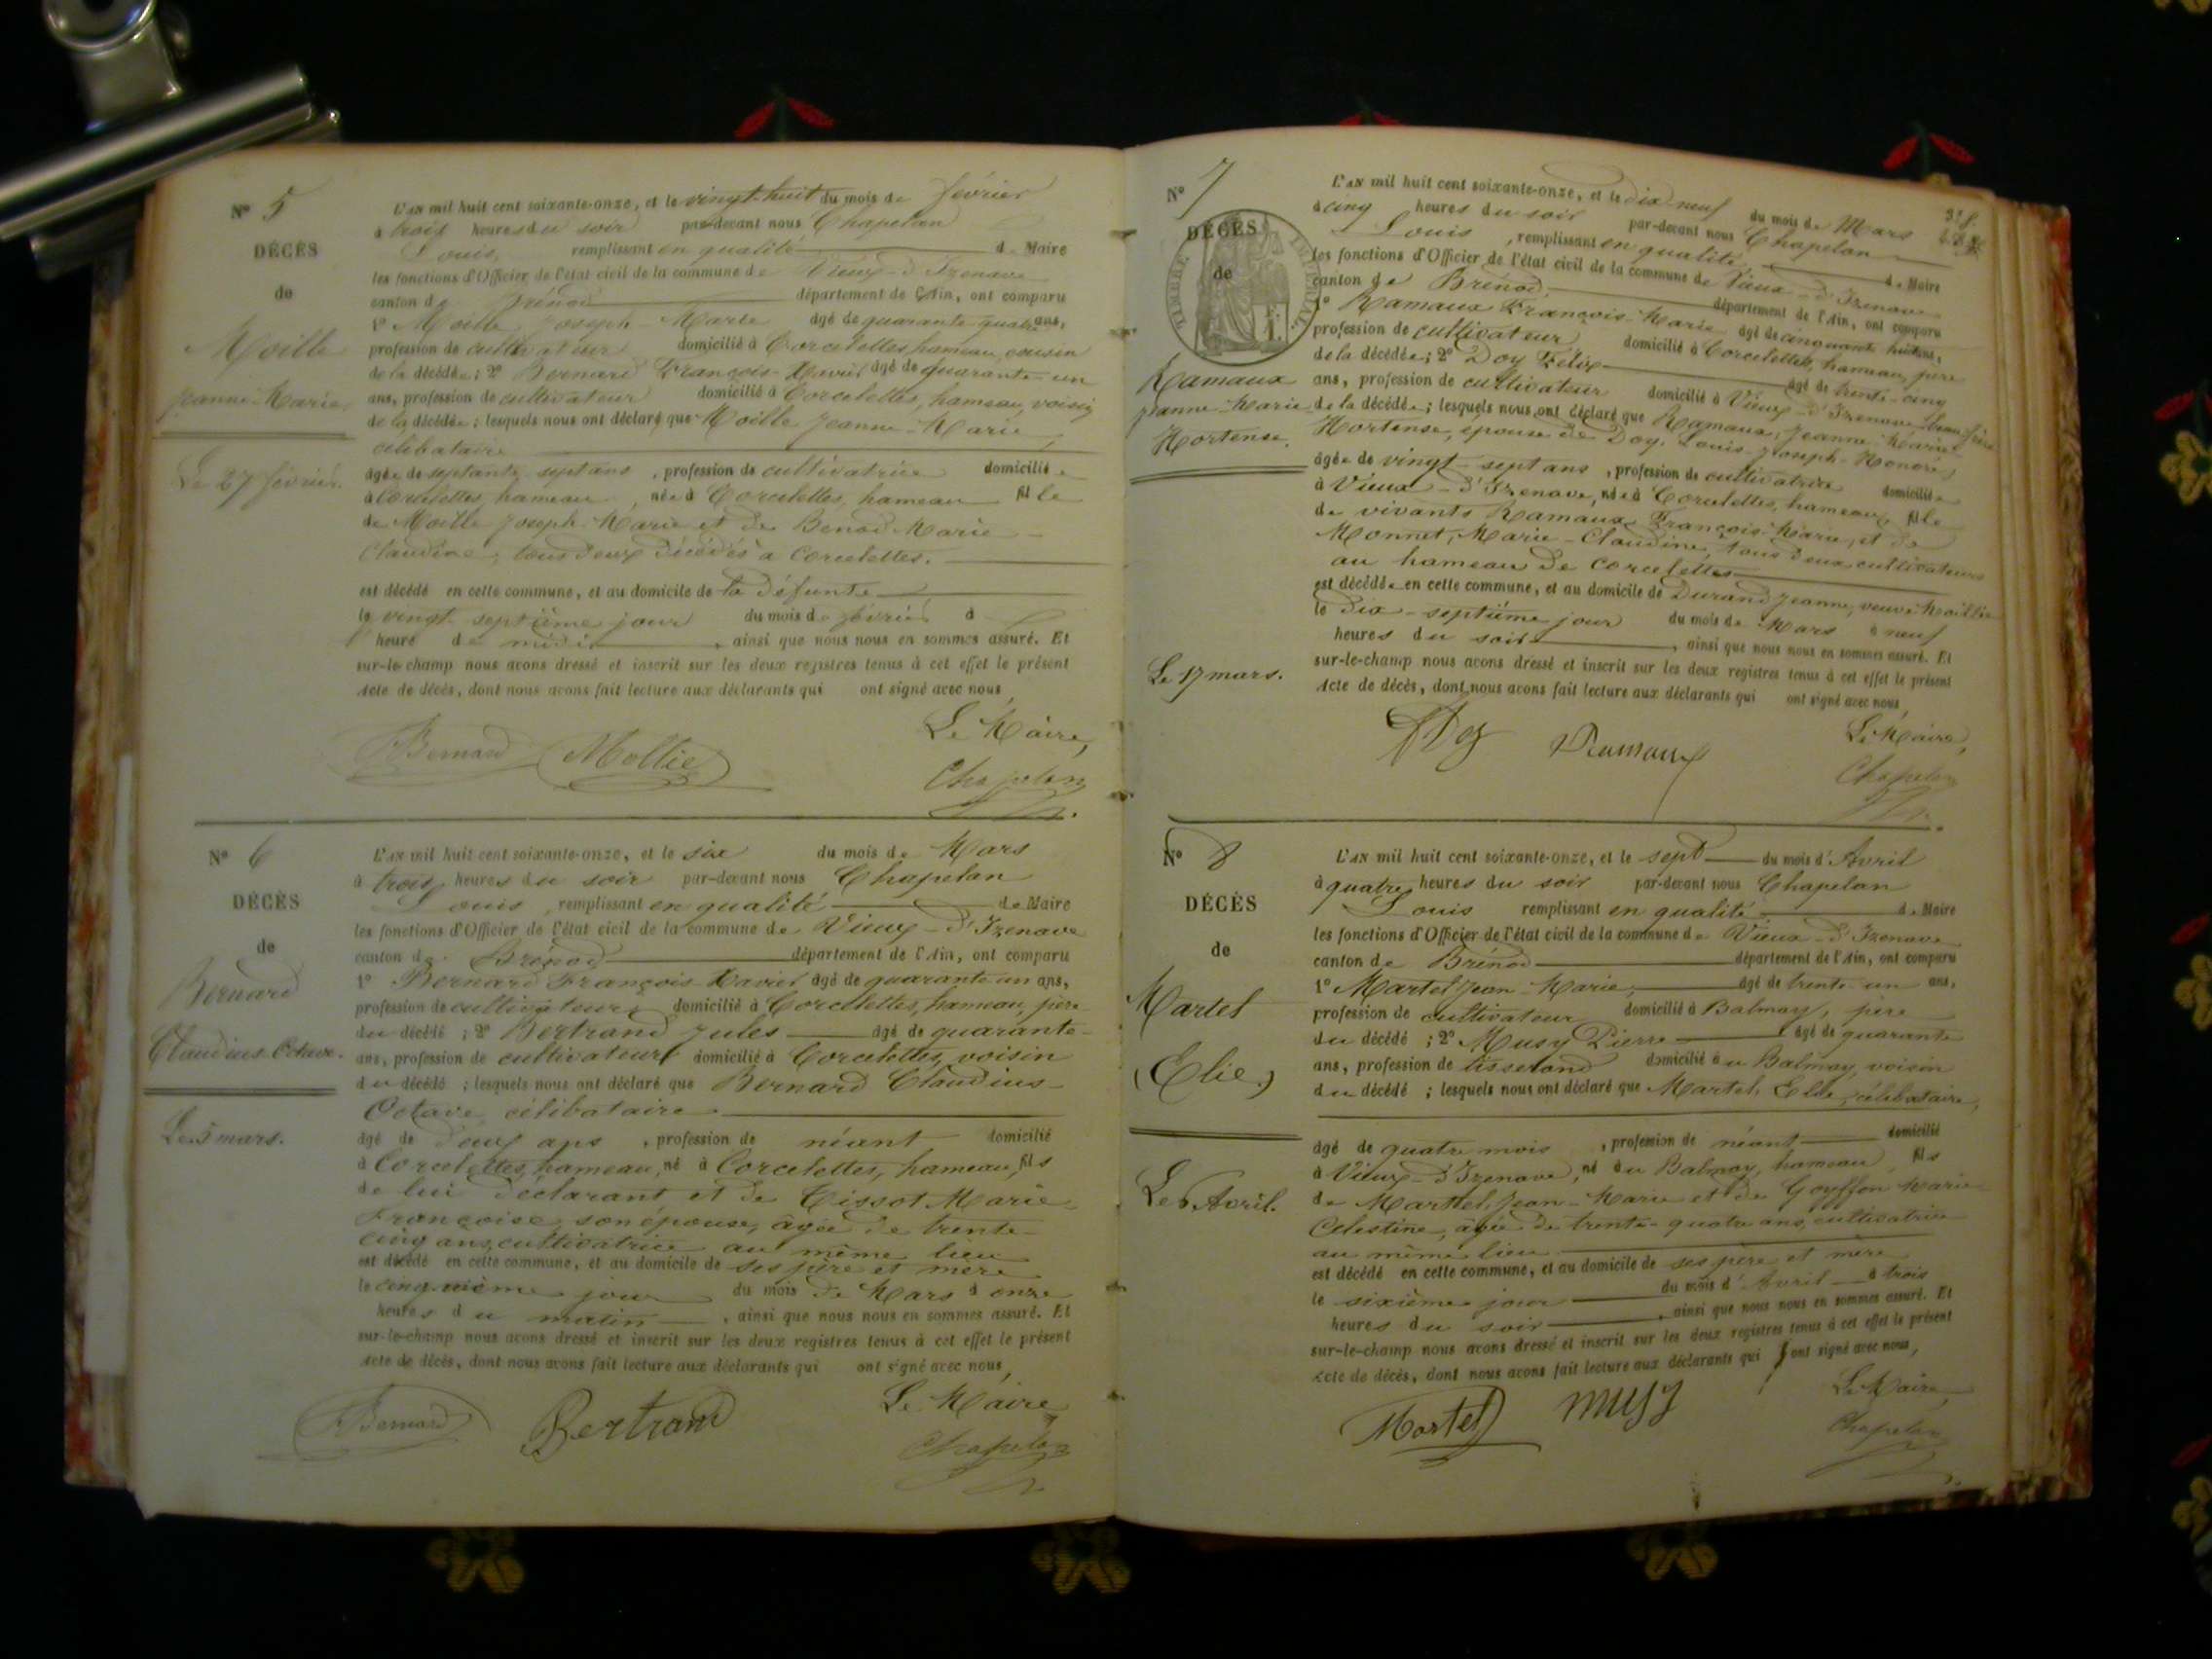 N° 5
DÉCÈS
de
Moille
Jeanne-Marie
Le 27 février.
L'an mil huit cent soixante-onze, et le vingt-huit du mois de février
à trois heures du soir par-devant nous Chapelan
Louis, remplissant en qualité de Maire
les fonctions d'Officier de l'état civil de la commune de Vieux-d'Izenave
canton de Brénod département de l'Ain, ont comparu
1° Moille Joseph-Marie âgé de quarante quatre ans,
profession de cultivateur domicilié à Corcelettes, hameau, cousin
de la décédée ; 2° Bernard François-Xavier âgé de quarante-un
ans, profession de cultivateur domicilié à Corcelettes, hameau, voisin
de la décédée ; lesquels nous ont déclaré que Moille Jeanne-Marie,
célibataire
âgée de septante-sept ans, profession de cultivatrice domiciliée
à Corcelettes, hameau, née à Corcelettes, hameau fille
de Moille Joseph-Marie et de Benod Marie-
Claudine, tous deux décédés à Corcelettes.
est décédé en cette commune, et au domicile de la défunte
le vingt-septième jour du mois de février à
heure de midi, ainsi que nous nous en sommes assuré. Et
sur-le-champ nous avons dressé et inscrit sur les deux registres tenus à cet effet le présent
Acte de décès, dont nous avons fait lecture aux déclarants qui ont signé avec nous,
Le Maire,
Bernard Mollie Chapelan
N° 6
DÉCÈS
de
Bernard
Claudius Octave.
Le 5 mars.
L'an mil huit cent soixante-onze, et le six du mois de Mars
à trois heures du soir par-devant nous Chapelan
Louis, remplissant en qualité de Maire
les fonctions d'Officier de l'état civil de la commune de Vieux-d'Izenave
canton de Brénod département de l'Ain, ont comparu
1° Bernard François-Xavier âgé de quarante un ans,
profession de cultivateur domicilié à Corcelettes, hameau, père
du décédé ; 2° Bertrand Jules âgé de quarante-
ans, profession de cultivateur domicilié à Corcelettes, voisin
du décédé ; lesquels nous ont déclaré que Bernard Claudius
Octave célibataire
âgé de deux ans, profession de néant domicilié
à Corcelettes, hameau, né à Corcelettes, hameau, fils
de lui déclarant et de Tissot Marie
Françoise, son épouse, âgée de trente-
cinq ans, cultivatrice au même lieu
est décédé en cette commune, et au domicile de ses père et mère
le cinquième jour du mois de Mars à onze
heures du matin, ainsi que nous nous en sommes assuré. Et
sur-le-champ nous avons dressé et inscrit sur les deux registres tenus à cet effet le présent
Acte de décès, dont nous avons fait lecture aux déclarants qui ont signé avec nous,
Le Maire
Bernard Bertrand Chapelan
N° 7
TIMBRE IMPERIAL
DÉCÈS
de
Ramaux
Jeanne-Marie
Hortense.
Le 17 mars.
L'an mil huit cent soixante-onze, et le dix neuf du mois de Mars
à cinq heures du soir par-devant nous Chapelan
Louis, remplissant en qualité de Maire
les fonctions d'Officier de l'état civil de la commune de Vieux-d'Izenave
canton de Brénod, département de l'Ain, ont comparu
1° Ramaux François-Marie âgé de cinquante huit ans,
profession de cultivateur domicilié à Corcelettes, hameau, père
de la décédée ; 2° Doy Félix âgé de trente-cinq
ans, profession de cultivateur domicilié à Vieux-d'Izenave beau-frère
de la décédée ; lesquels nous ont déclaré que Ramaux, Jeanne-Marie-
Hortense, épouse de Doy, Louis-Joseph-Honoré,
âgée de vingt-sept ans, profession de cultivatrice domiciliée
à Vieux-d'Izenave, née à Corcelettes, hameau, fille
de vivants Ramaux François-Marie, et de
Monnet, Marie-Claudine, tous deux cultivateurs
au hameau de Corcelettes
est décédée en cette commune, et au domicile de Durand Jeanne, veuve
le dix-septième jour du mois de Mars à neuf
heures du soir, ainsi que nous nous en sommes assuré. Et
sur-le-champ nous avons dressé et inscrit sur les deux registres tenus à cet effet le présent
Acte de décès, dont nous avons fait lecture aux déclarants qui ont signé avec nous,
Le Maire,
Doy Ramaux Chapelan
N° 8
DÉCÈS
de
Martel
(Elie.)
Le 6 Avril.
L'an mil huit cent soixante-onze, et le sept du mois d'Avril
à quatre heures du soir par-devant nous Chapelan
Louis remplissant en qualité de Maire
les fonctions d'Officier de l'état civil de la commune de Vieux-d'Izenave
canton de Brénod département de l'Ain, ont comparu
1° Martel Jean-Marie, âgé de trente-un ans,
profession de cultivateur domicilié à Balmay, père
du décédé ; 2° Musy Pierre âgé de quarante
ans, profession de tisserand domicilié au Balmay, voisin
du décédé ; lesquels nous ont déclaré que Martel, Elie, célibataire,
âgé de quatre mois, profession de néant domicilié
à Vieux-d'Izenave, né au Balmay, hameau, fils
de Marttel, Jean-Marie et de Goyffon Marie-
Célestine, âgée de trente-quatre ans, cultivatrice
au même lieu
est décédé en cette commune, et au domicile de ses père et mère
le sixième jour du mois d'Avril à trois
heures du soir, ainsi que nous nous en sommes assuré. Et
sur-le-champ nous avons dressé et inscrit sur les deux registres tenus à cet effet le présent
Acte de décès, dont nous avons fait lecture aux déclarants qui ont signé avec nous,
Le Maire
Martel musy Chapelan